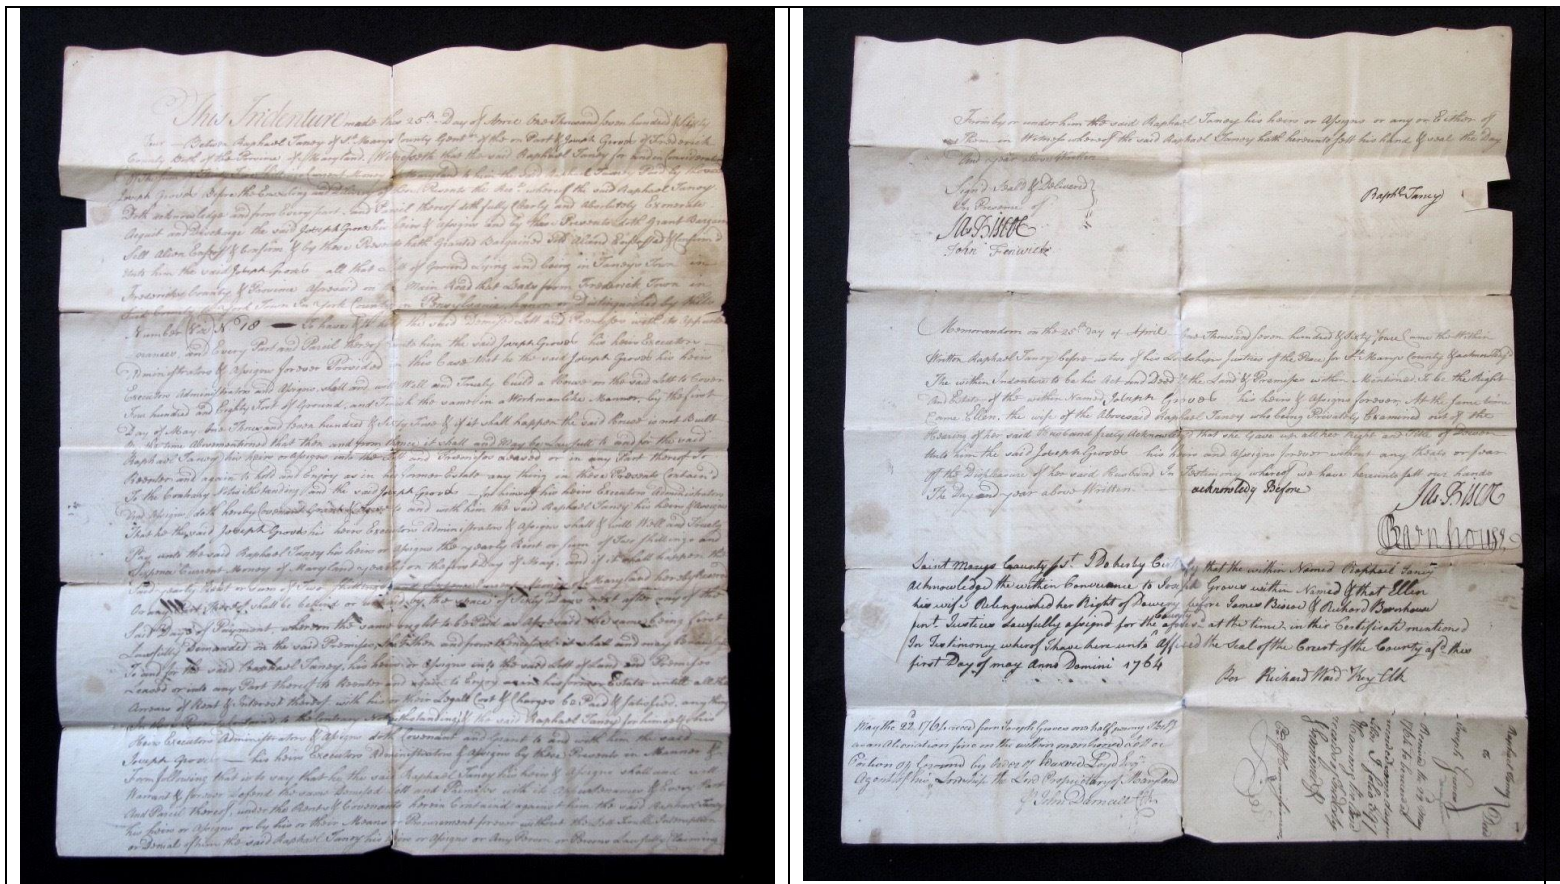 This Indenture made this 25th Day of April One Thousand seven hundred & Sixty
Four Between Raphael Taney of St. Marys County Gentn of the on Part & Joseph Grove of Frederick
County Both of the Province of Maryland, Witnesseth that the said Raphael Taney for and in Consideration
Current Money of Maryland to him the said Raphael Taney Paid by the said
Joseph Grove Before the Ensealing and delivery of these Presents the Rect. whereof the said Raphael Taney
Doth acknowledge and from Every part and Parcel thereof doth fully Clearly and Absolutely Exonerate
Acquit and Discharge the said Joseph Grove his heirs & Assigns and by these Presents doth Grant Bargain
Sell Alien Enfeoff & Confirm & by these Presents hath Granted Bargained Sold Aliend Enfeoffed & Confirmd
Unto him the said Joseph Grove all that Lott of Ground Lying and being in Taneys Town in
Frederick County & Province Aforesaid on the Main Road that Leads from Frederick Town in
County Town in York County in Pensylvania known or Distinguished by
Number No 18 To have & to hold the said Demised Lott and Premises with its appurte
nances, and Every Part and Parcel thereof unto him the said Joseph Grove his heirs Executors
Administrators & Assigns forever Provided this Case that he the said Joseph Grove his heirs
Executors Administrators and Assigns shall and will Well and Truely build a House on the said Lott to Cover
Four hundred and Eighty Foot of Ground, and finish the same in a Workmanlike Manner, by the first
Day of May One Thousand Seven hundred & Sixty Five & if it shall happen the said House is not Built
the time Abovementioned that then and from thence it shall and May be Lawfull to and for the said
Raphael Taney his heirs or Assigns into the Lott and Premises Leased or in any Part thereof To
Reenter and again to hold and Enjoy as in his former Estate any thing in these Presents Contain'd
To the Contrary Notwithstanding and the said Joseph Grove for himself his heirs Executors Administrators
and Assigns doth hereby Covenant Grant & Agree to and with him the said Raphael Taney his heirs & Assigns
That he the said Joseph Grove his heirs Executors Administrators & Assigns shall & will Well and Truely
Pay unto the said Raphael Taney his heirs or Assigns the yearly Rent or sum of Two Shillings and
Sixpence Current Money of Maryland yearly on the first Day of May, and if it shall happen the
Said yearly Rent or sum of Two Shillings and Sixpence Current Money of Maryland
shall be behind or by the space of Sixty Days next after any of the
Said Days of Payment, whereon the same ought to be Paid as Aforesaid the same being first
Lawfully Demanded on the said Premises, that then and from thence it shall and may be Lawfull
To and for the said Raphael Taney, his heirs or Assigns into the said Lott of Land and Premises
Leased or into any Part thereof to Reenter and again to Enjoy as in his former Estate untill all the
Arrears of Rent & Interest thereof with his or their Legall Cost & Charges be Paid & Satisfied, any thing
to the Contrary Notwithstanding & the said Raphael Taney for himself his
Heirs Executors Administrators & Assigns doth Covenant and Grant to and with him the said
Joseph Grove his heirs Executors Administrators & Assigns by these Presents in Manner &
Form following that is to say that he the said Raphael Taney his heirs & Assigns shall and will
Warrant & forever defend the said Demised Lott and Premises with its Appurtenances & Every Part
And Parcel thereof, under the Rents & Covenants herein Contained against him the said Raphael Taney
his heirs or Assigns or by his or their Means or Procurement forever without the Lett Trouble Interruption
or Denial of him the said Raphael Taney his heirs or Assigns or Any Person or Persons Lawfully Claiming
From by or under him the said Raphael Taney his heirs or Assigns or any or Either of
Them In Witness whereof the said Raphael Taney hath hereunto sett his hand & seal the Day
And year above Written
Signd Seald & Deliverd
In Presence of
Raphl. Taney
Jas Biscoe
John Fenwick
Memorandum on the 25th Day of April One Thousand Seven hundred & Sixty four Came the Within
Written Raphael Taney before us two of his Lordships Justices of the Peace for St. Marys County & acknowledgd
The within Indenture to be his Act and Deed & the Land & Premises within Mentioned To be the Right
And Estate of the within Named Joseph Grove his heirs & Assigns forever. At the same time
Came Ellen, the wife of the Aforesaid Raphael Taney who being Privately Examined out of the
Hearing of her said Husband freely Acknowledgd that she Gave up all her Right and Title of Dower
Unto him the said Joseph Grove his heirs and Assigns forever without any threats or fear
of the Displeasure of her said Husband In Testimony whereof we have hereunto sett our hands
The Day and year above Written
acknowledg Before
Jas Biscoe
R Barnhouse
Saint Marys County Sst. I Do hereby Certify that the within Named Raphael Taney
acknowledged the within Conveyance to Joseph Graves within Named & that Ellen
his wife Relinquished her Right of Dowery before James Biscoe & Richard Barnhouse
Justices Lawfully assigned for the County aforesd at the time in this Certificate mentioned
In Testimony whereof I have here unto Affixed the Seal of the Court of the County afd this
first Day of may Anno Domini 1764
Per Richard Ward Key Clk
May the 22d received from Joseph Graves one half penny Sterlg
as an Alienation fine on the within mentioned Lott or
Portion of Ground by order of Edward Lloyd Esqr
Agent of his Lordship the Lord Proprietary of Maryland
John Darnall
Raphael Taney
to
Joseph Graves
Deed
Received
to be recorded
and same day
recorded in